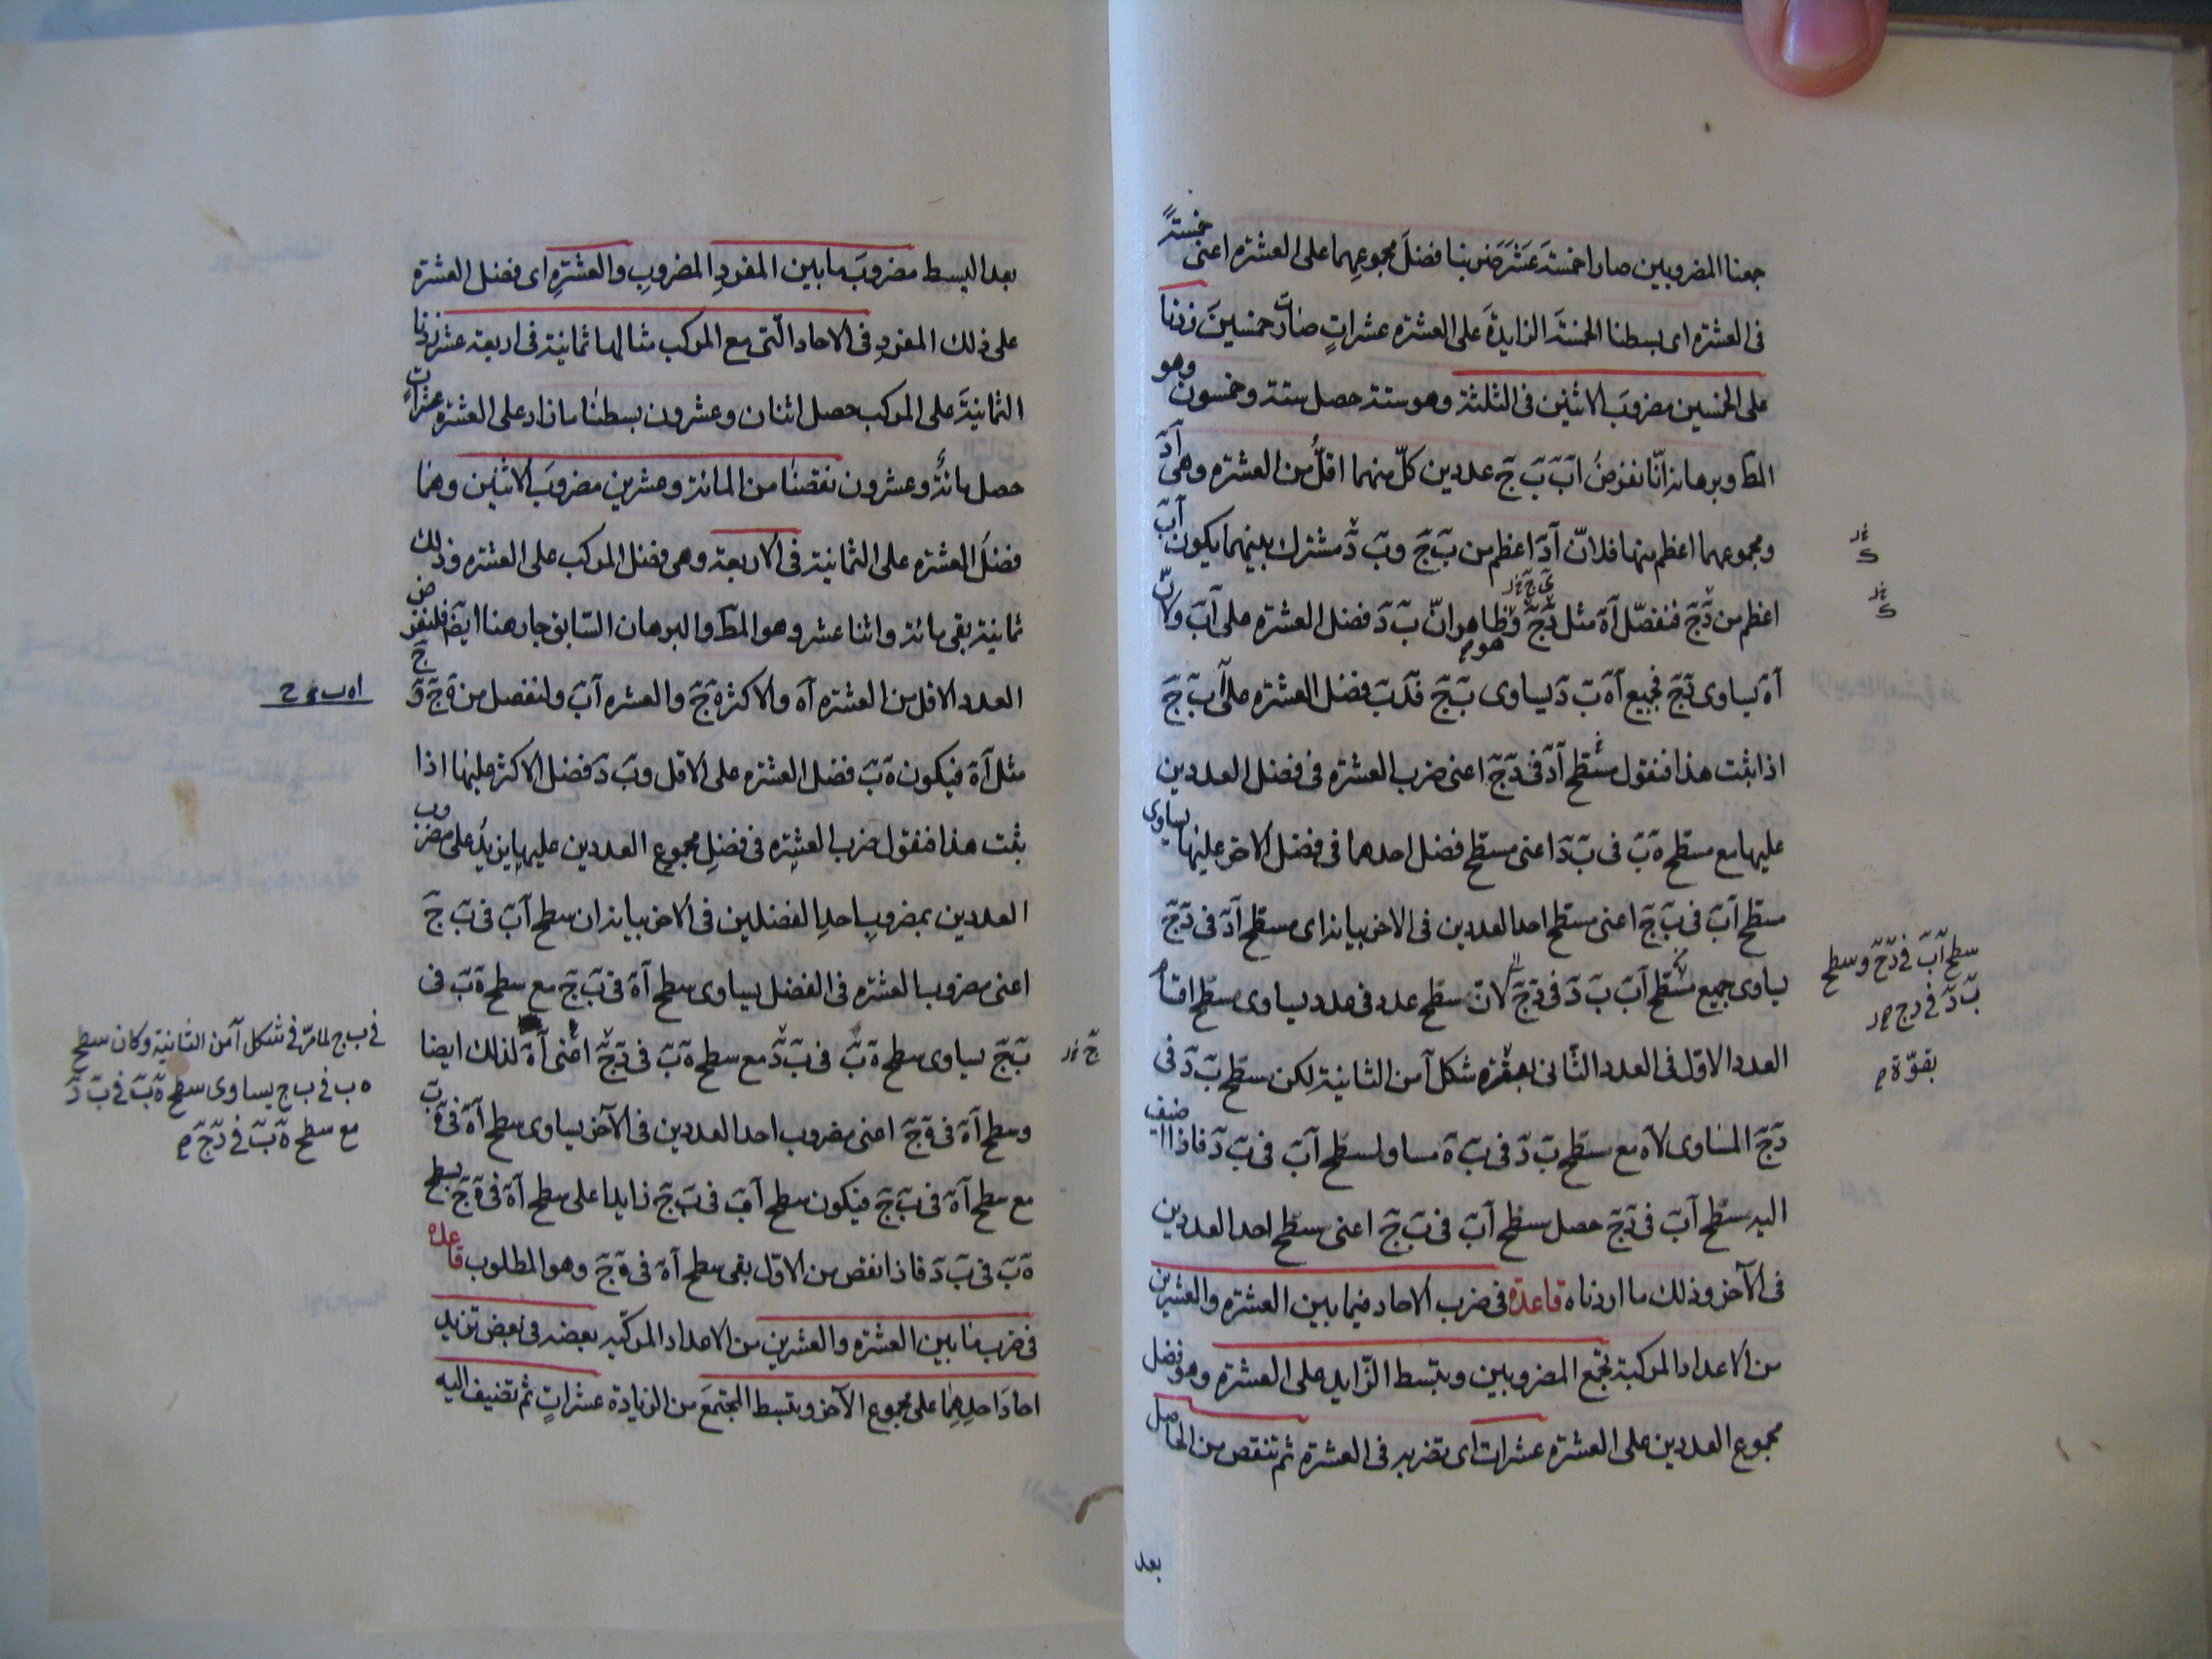 جمعنا المضروبين صارا خمسة عشر ضربنا فضل مجموعهما على العشرة اعنى خمسة
فى العشرة اى بسطنا الخمسة الزايدة على العشرة عشرات صارت خمسين زدنا
على الخمسين مضروب الاثنين فى الثلثة وهو ستة حصل ستة وخمسون وهو
المط وبرهانه انّا نفرض اب ب ج عددين كلّ منهما اقلّ من العشرة وهى اد
ومجموعهما اعظم منها فلانّ اد اعظم من ب ج وب د مشترك بينهما يكون اب
اعظم من د ج فنفصّل اه مثل د ج وظاهر انّ ب د فضل العشرة على اب ولانّ
اه يساوى د ج فجميع اه ب د يساوى ب ج فه ب فضل العشرة على ب ج
اذا ثبت هذا فنقول مسطح اد فى د ج اعنى ضرب العشرة فى فضل العددين
عليها مع مسطح ه ب فى ب د اعنى مسطح فضل احدهما فى فضل الاخر عليها يساوى
مسطح اب فى ب ج اعنى مسطح احد العددين فى الاخر بيانه اى مسطح اد فى د ج
يساوى جميع مسطح اب ب د فى د ج لانّ سطح عدد فى عدد يساوى سطح اقسام
العدد الاول فى العدد الثانى بقوة شكل ا من الثانية لكن سطح ب د فى
د ج المساوى لاه مع سطح ب د فى ب ه مساو لسطح اب فى ب د فاذا اضيف
اليه سطح اب فى د ج حصل سطح اب فى ب ج اعنى سطح احد العددين
فى الآخر وذلك ما اردناه قاعدة فى ضرب الاحاد فيما بين العشرة والعشرين
من الاعداد المركبة تجمع المضروبين وتبسط الزّايد على العشرة وهو فضل
مجموع العددين على العشرة عشرات اى تضربه فى العشرة ثم تنقص من الحاصل
بعد
سطح اب فى د ج وسطح
ب د فى د ج
بقوّة
بعد البسط مضروب ما بين المفرد المضروب والعشرة اى فضل العشرة
على ذلك المفرد فى الاحاد الّتى مع المركب مثالها ثمانية فى اربعة عشر زدنا
الثمانية على المركب حصل اثنان وعشرون بسطنا ما زاد على العشرة عشرات
حصل مائة وعشرون نقصنا من المائة وعشرين مضروب الاثنين وهما
فضل العشرة على الثمانية فى الاربعة وهى فضل المركب على العشرة وذلك
ثمانية بقى مائة واثنا عشر وهو المط والبرهان السّابق جار هنا ايضا فلنفرض
العدد الاقل من العشرة اه والاكثر ه ج والعشره اب ولنفصل من ه ج د ج
مثل اه فيكون ه ب فضل العشره على الاقل وب د فضل الاكثر عليها اذا
ثبت هذا فنقول ضرب العشره فى فضل مجموع العددين عليها يزيد على مضروب
العددين بمضروب احد الفضلين فى الاخر بيانه ان سطح اب فى ب ج
اعنى مضروب العشره فى الفضل يساوى سطح اه فى ب ج مع سطح ه ب فى
ب ج يساوى سطح ه ب فى ب د مع سطح ه ب فى د ج اعنى اه لذلك ايضا
وسطح اه فى ه ج اعنى مضروب احد العددين فى الآخر يساوى سطح اه فى ه ب
مع سطح اه فى ب ج فيكون سطح اب فى ب ج زايدا على سطح اه فى ه ج بسطح
ه ب فى ب د فاذا نقص من الاوّل بقى سطح اه فى ه ج وهو المطلوب قاعده
فى ضرب ما بين العشرة والعشرين من الاعداد المركّبه بعضه فى بعض تزيد
احاد احدهما على مجموع الآخر وتبسط المجتمع من الزيادة عشرات ثم تضيف اليه
ا ه ب د ج
فى ب ج لما مرّ فى شكل ا من الثانية وكان سطح
ه ب فى ب ج يساوى سطح ه ب فى ب د
مع سطح ه ب فى د ج